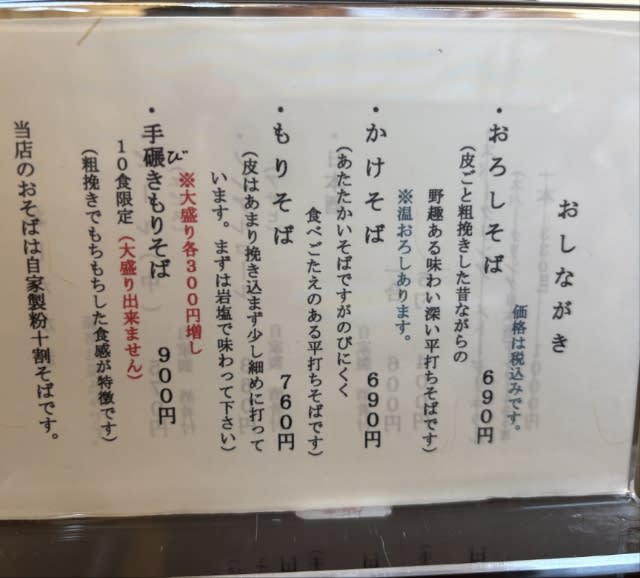 おしながき
価格は税込みです。
・おろしそば 690円
(皮ごと粗挽きした昔ながらの
野趣ある味わい深い平打ちそばです)
※温おろしあります。
・かけそば 690円
(あたたかいそばですがのびにくく
食べごたえのある平打ちそばです)
・もりそば 760円
(皮はあまり挽き込まず少し細めに打って
います。まずは岩塩で味わって下さい)
※大盛り各300円増し
び
・手碾きもりそば 900円
10食限定(大盛り出来ません)
(粗挽きでもちもちした食感が特徴です)
当店のおそばは自家製粉十割そばです。